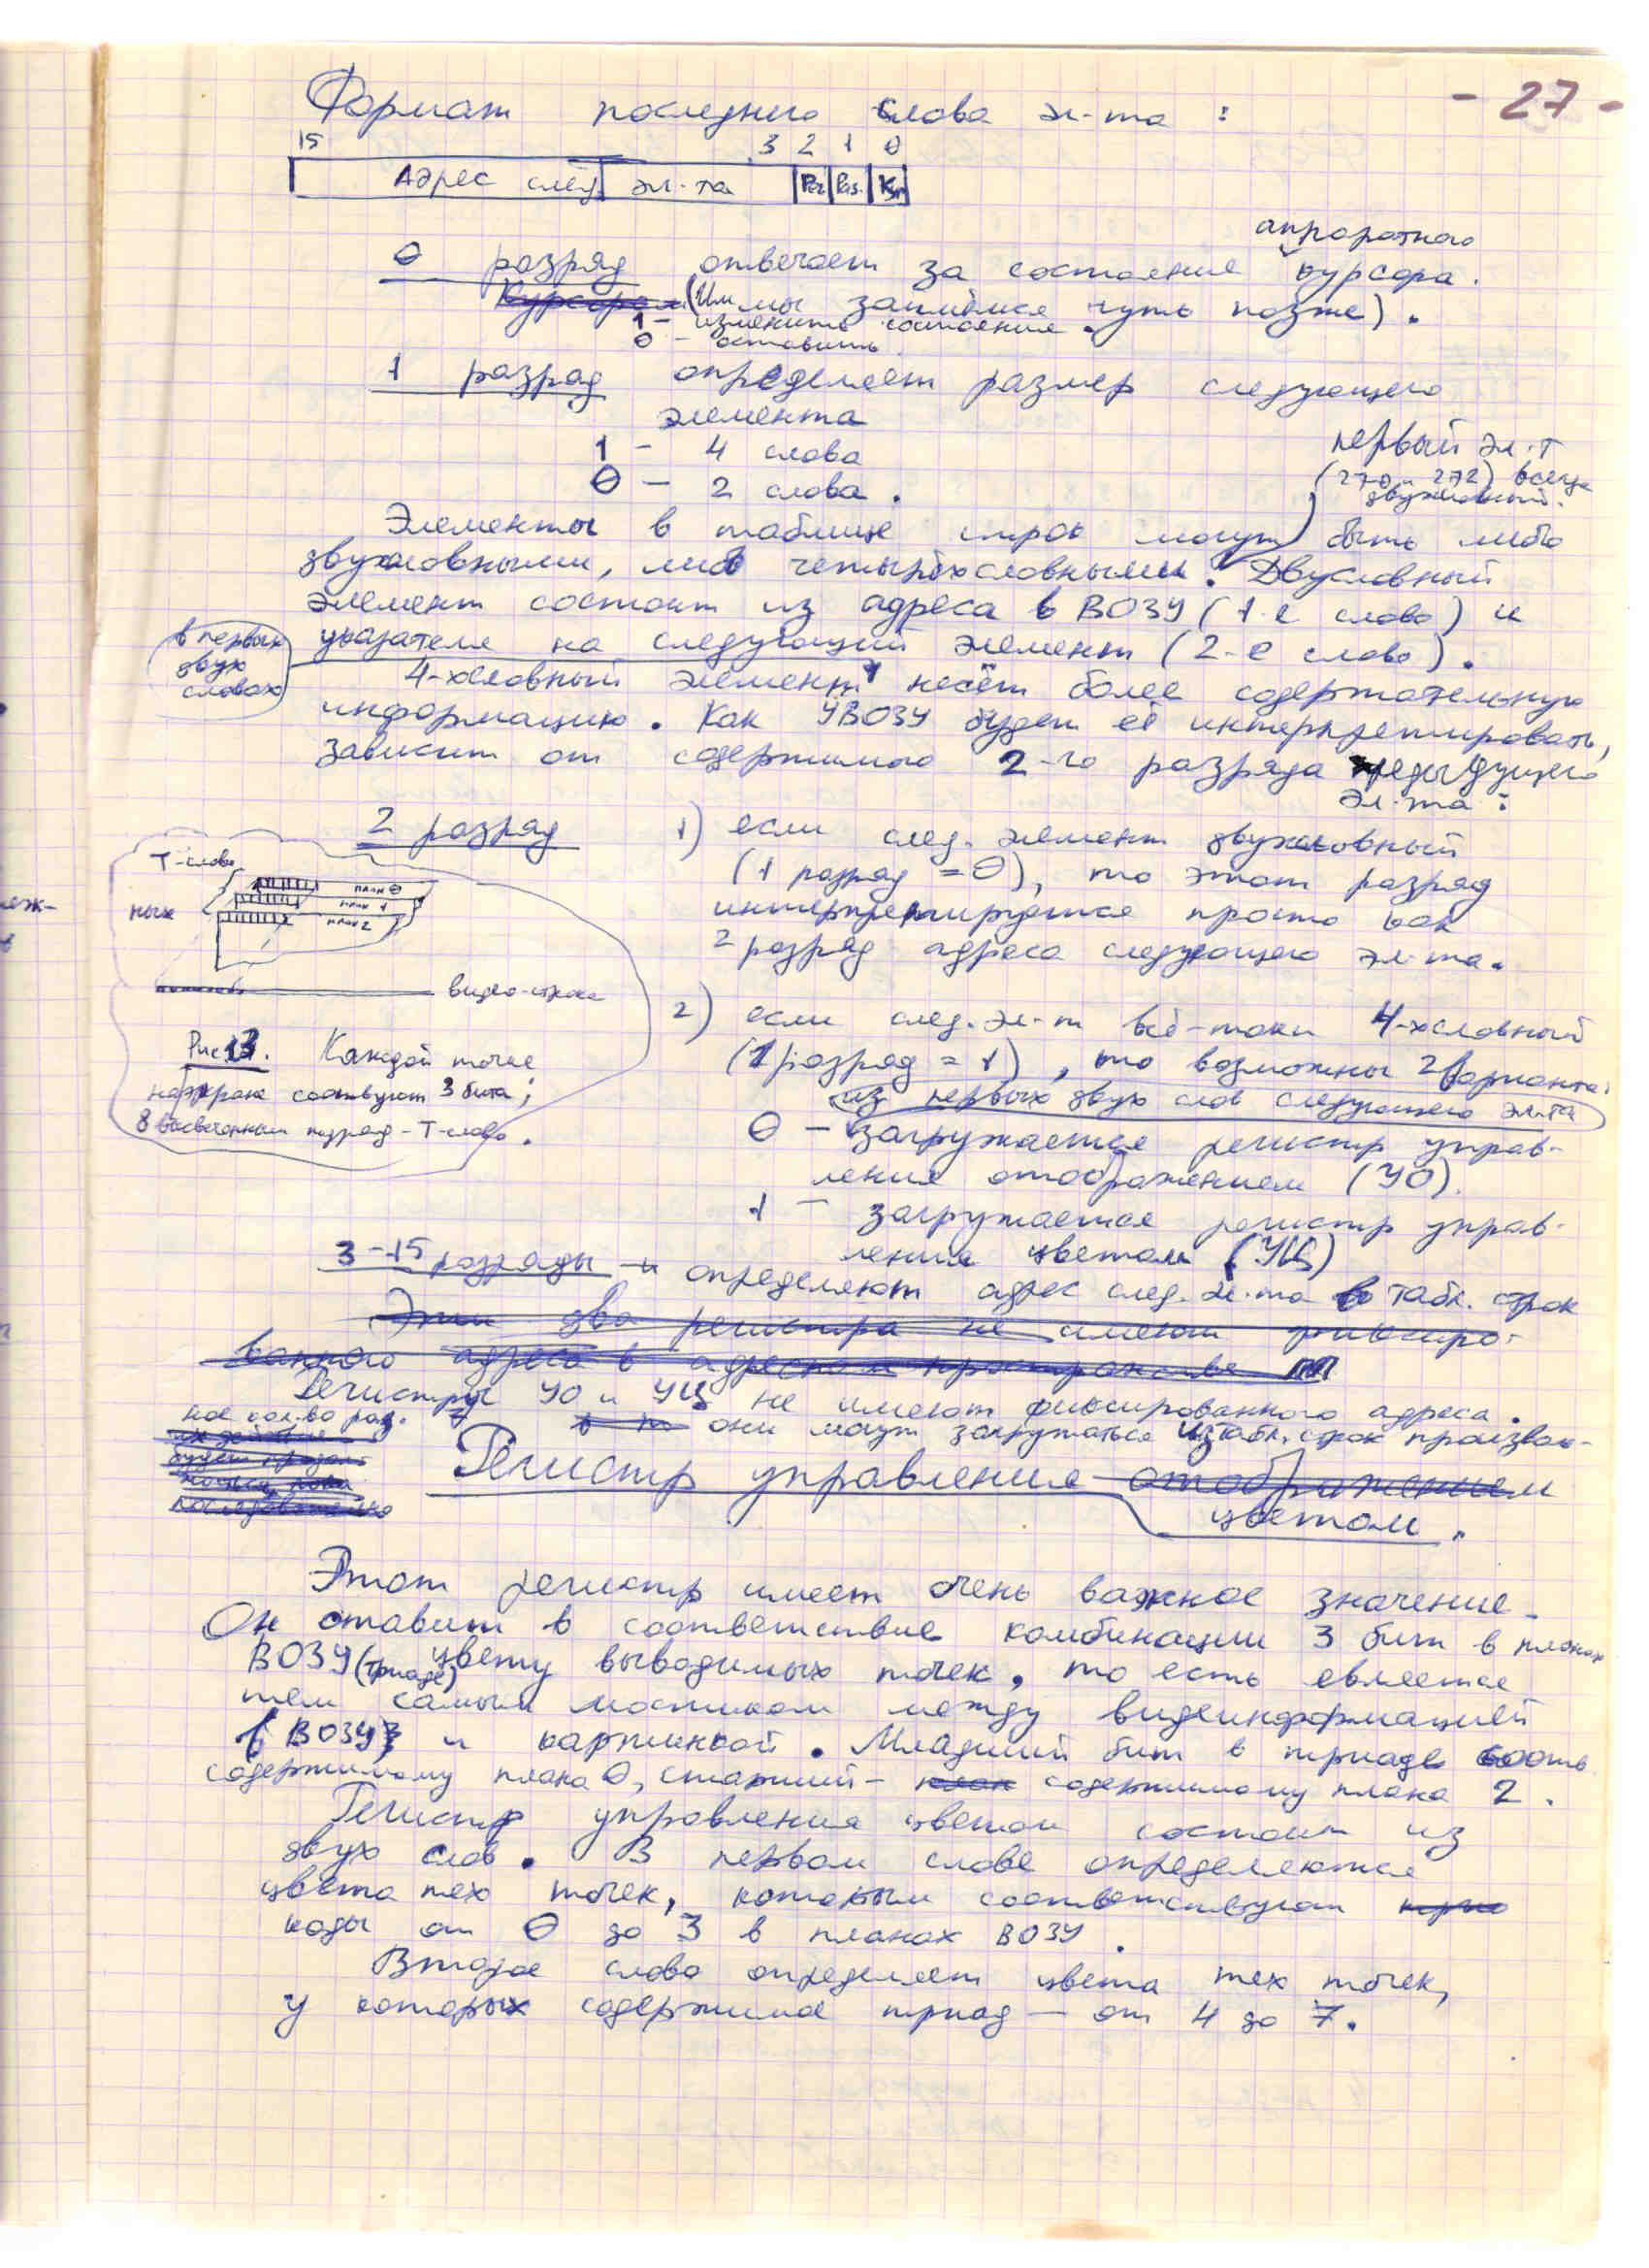 - 27 -
Формат последнего слова эл-та :
15 3 2 1 0
Адрес след. эл-та Рег Раз. Кур
аппаратного
0 разряд отвечает за состояние курсора.
Курсора (Им мы займёмся чуть позже).
1 - изменить состояние.
0 - оставить
1 разряд определяет размер следующего
элемента
1 - 4 слова
0 - 2 слова.
первый эл-т
(270 и 272) всегда
двухсловный.
Элементы в таблице строк могут быть либо
двухсловными, либо четырёхсловными. Двусловный
элемент состоит из адреса в ВОЗУ (1-е слово) и
указателя на следующий элемент (2-е слово).
в первых
двух
словах
4-хсловный элемент несёт более содержательную
информацию. Как УВОЗУ будет её интерпретировать,
зависит от содержимого 2-го разряда предыдущего
эл-та :
2 разряд 1) если след. элемент двухсловный
(1 разряд = 0), то этот разряд
интерпретируется просто как
2 разряд адреса следующего эл-та.
2) если след. эл-т всё-таки 4-хсловный
(1 разряд = 1), то возможны 2 варианта:
из первых двух слов следующего эл-та
0 - загружается регистр управ-
ления отображением (УО).
1 - загружается регистр управ-
ления цветом (УЦ)
Т-слово
план 0
план 1
план 2
ных
видео-строка
Рис 13. Каждой точке
на экране соотвтсвуют 3 бита;
8 высвеченных подряд - Т-слово.
3-15 разряды - определяют адрес след. эл-та в табл. строк
Эти два регистра не имеют фиксиро-
ванного адреса в адресном пространстве ПП
Регистры УО и УЦ не имеют фиксированного адреса.
они могут загружаться из табл. строк произволь-
ное кол-во раз.
Регистр управления отображением
цветом.
Этот регистр имеет очень важное значение.
Он ставит в соответствие комбинации 3 бит в планах
ВОЗУ (триаде) цвету выводимых точек, то есть является
тем самым мостиком между видеинформацией
(в ВОЗУ) и картинкой. Младший бит в триаде соотв.
содержимому плана 0, старший - план содержимому плана 2.
Регистр управления цветом состоит из
двух слов. В первом слове определяются
цвета тех точек, которым соответствуют
коды от 0 до 3 в планах ВОЗУ.
Второе слово определяет цвета тех точек,
у которых содержимое триад - от 4 до 7.